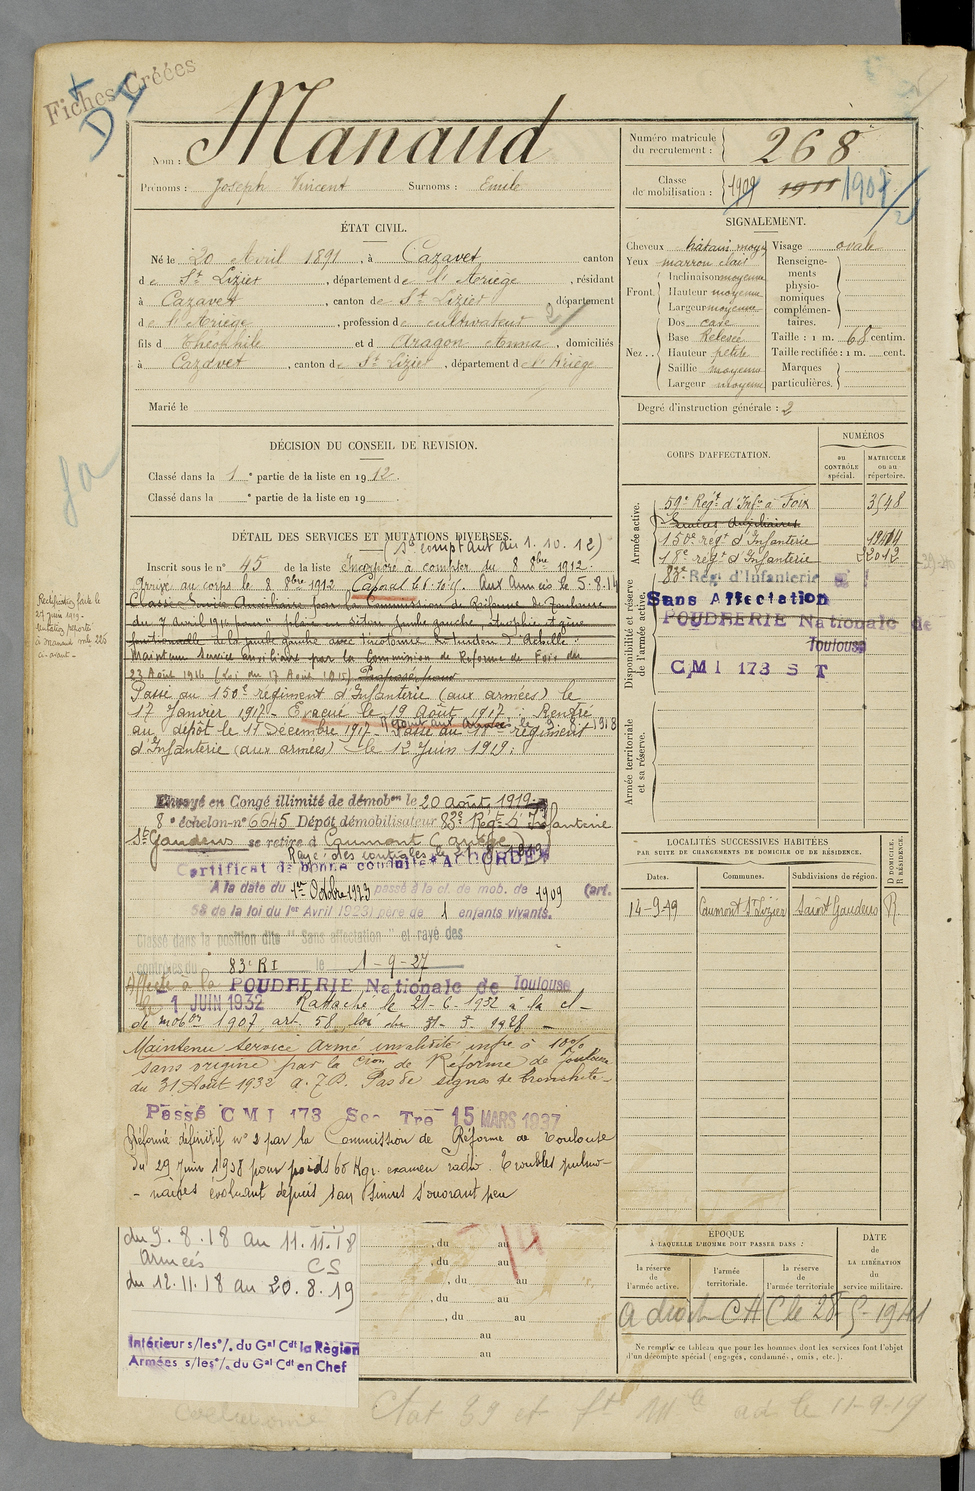 Fiches Créées
D
Nom : Manaud
Prénoms : Joseph Vincent Surnoms : Emile
Numéro matricule du recrutement : 268
Classe de mobilisation : 1909 1911 1907
ÉTAT CIVIL.
Né le 20 Avril 1891, à Cazavet canton
de St Lizier, département de l'Ariège, résidant
à Cazavet, canton de St Lizier, département
de l'Ariège, profession de cultivateur
fils d Théophile et d Aragon Anna, domiciliés
à Cazavet, canton de St Lizier, département de l'Ariège
Marié le
SIGNALEMENT.
Cheveux châtain moyen Visage ovale
Yeux marron clair
Front. Inclinaison moyenne
Hauteur moyenne
Largeur moyenne
Nez.. Dos cave
Base Relevée
Hauteur petite
Saillie moyenne
Largeur moyenne
Renseignements physionomiques complémentaires.
Taille : 1 m. 68 centim.
Taille rectifiée : 1 m. cent.
Marques particulières.
Degré d'instruction générale : 2
DÉCISION DU CONSEIL DE RÉVISION.
Classé dans la 1e partie de la liste en 1912.
Classé dans la e partie de la liste en 19
DÉTAIL DES SERVICES ET MUTATIONS DIVERSES.
(Se comptant du 1.10.12)
Inscrit sous le n° 45 de la liste Incorporé à compter du 8 8bre 1912.
Arrivé au corps le 8 8bre 1912 Caporal Aux Armées le 5-8-14
Classé Service Auxiliaire par la Commission de Réforme de Toulouse
du 7 Avril 1916 pour
fonctionnelle de la jambe gauche avec du tendon d'Achille.
Maintenu Service auxiliaire par la Commission de Réforme de Foix du
23 Août 1916 (Loi du 17 Août 1915)
Passé au 150e régiment d'Infanterie (aux armées) le
17 Janvier 1917 - Evacué le 19 Août 1917 : Rentré
au dépôt le 11 Décembre 1917 - Reparti aux Armées le 9-8-1918
Passé du 18e régiment
d'Infanterie (aux armées) le 12 Juin 1919.
Envoyé en Congé illimité de démobon le 20 août 1919
8e échelon-n° 6645 Dépôt démobilisateur 83e Regt d'Infanterie
St Gaudens se retire à Caumont (Ariège)
Rayé des contrôles le
Certificat de bonne conduite "ACCORDÉ"
A la date du 1er Octobre 1923 passé à la cl. de mob. de 1909 (art.
58 de la loi du 1er Avril 1923) père de 1 enfants vivants.
Classé dans la position dite "Sans affectation" et rayé des
contrôles du 83e RI le 1-9-27
Affecté à la POUDRERIE Nationale de Toulouse
le 1 JUIN 1932 Rattaché le 21-6-1932 à la cl-
de mobon 1907, art. 58, loi du 31-3-1928
Maintenu service armé invalidité infre à 10%
sans origine par la Cion de Réforme de Toulouse
du 31 Août 1932 Pas de signes de bronchite
Passé CMI 173 Sec Tre 15 MARS 1937
Réformé définitif n° 2 par la Commission de Réforme de Toulouse
du 29 Juin 1938 pour poids 60 Kgr. examen radio. Troubles pulmo-
-naires évoluant depuis
du 9.8.18 au 11.11.18
Armées CS
du 12.11.18 au 20.8.19
Intérieur s/les o/. du Gal Cdt la Région
Armées s/les o/. du Gal Cdt en Chef
, du au
, du au
, du au
, du au
, du au
au
au
CORPS D'AFFECTATION.
NUMÉROS
au CONTRÔLE spécial.
MATRICULE ou au répertoire.
Armée active.
59e Regt d'Infie à Foix
Services Auxiliaires
150e regt d'Infanterie
18e regt d'Infanterie 22012
Disponibilité et réserve de l'armée active.
83e Rég. d'Infanterie
Sans Affectation
POUDRERIE Nationale de
Toulouse
CMI 173 S T
Armée territoriale et sa réserve.
LOCALITÉS SUCCESSIVES HABITÉES
PAR SUITE DE CHANGEMENTS DE DOMICILE OU DE RÉSIDENCE.
D DOMICILE. R RÉSIDENCE.
Dates. Communes. Subdivisions de région.
14-9-19 Caumont St Lizier Saint Gaudens R.
ÉPOQUE
À LAQUELLE L'HOMME DOIT PASSER DANS :
la réserve de l'armée active.
l'armée territoriale.
la réserve de l'armée territoriale
DATE de LA LIBÉRATION du service militaire.
a droit CH C le 28-5-1941
Ne remplir ce tableau que pour les hommes dont les services font l'objet
d'un décompte spécial (engagés, condamnés, omis, etc.).
Rectification faite le
à Manaud mle 226
ci-avant -
le 11-9-19